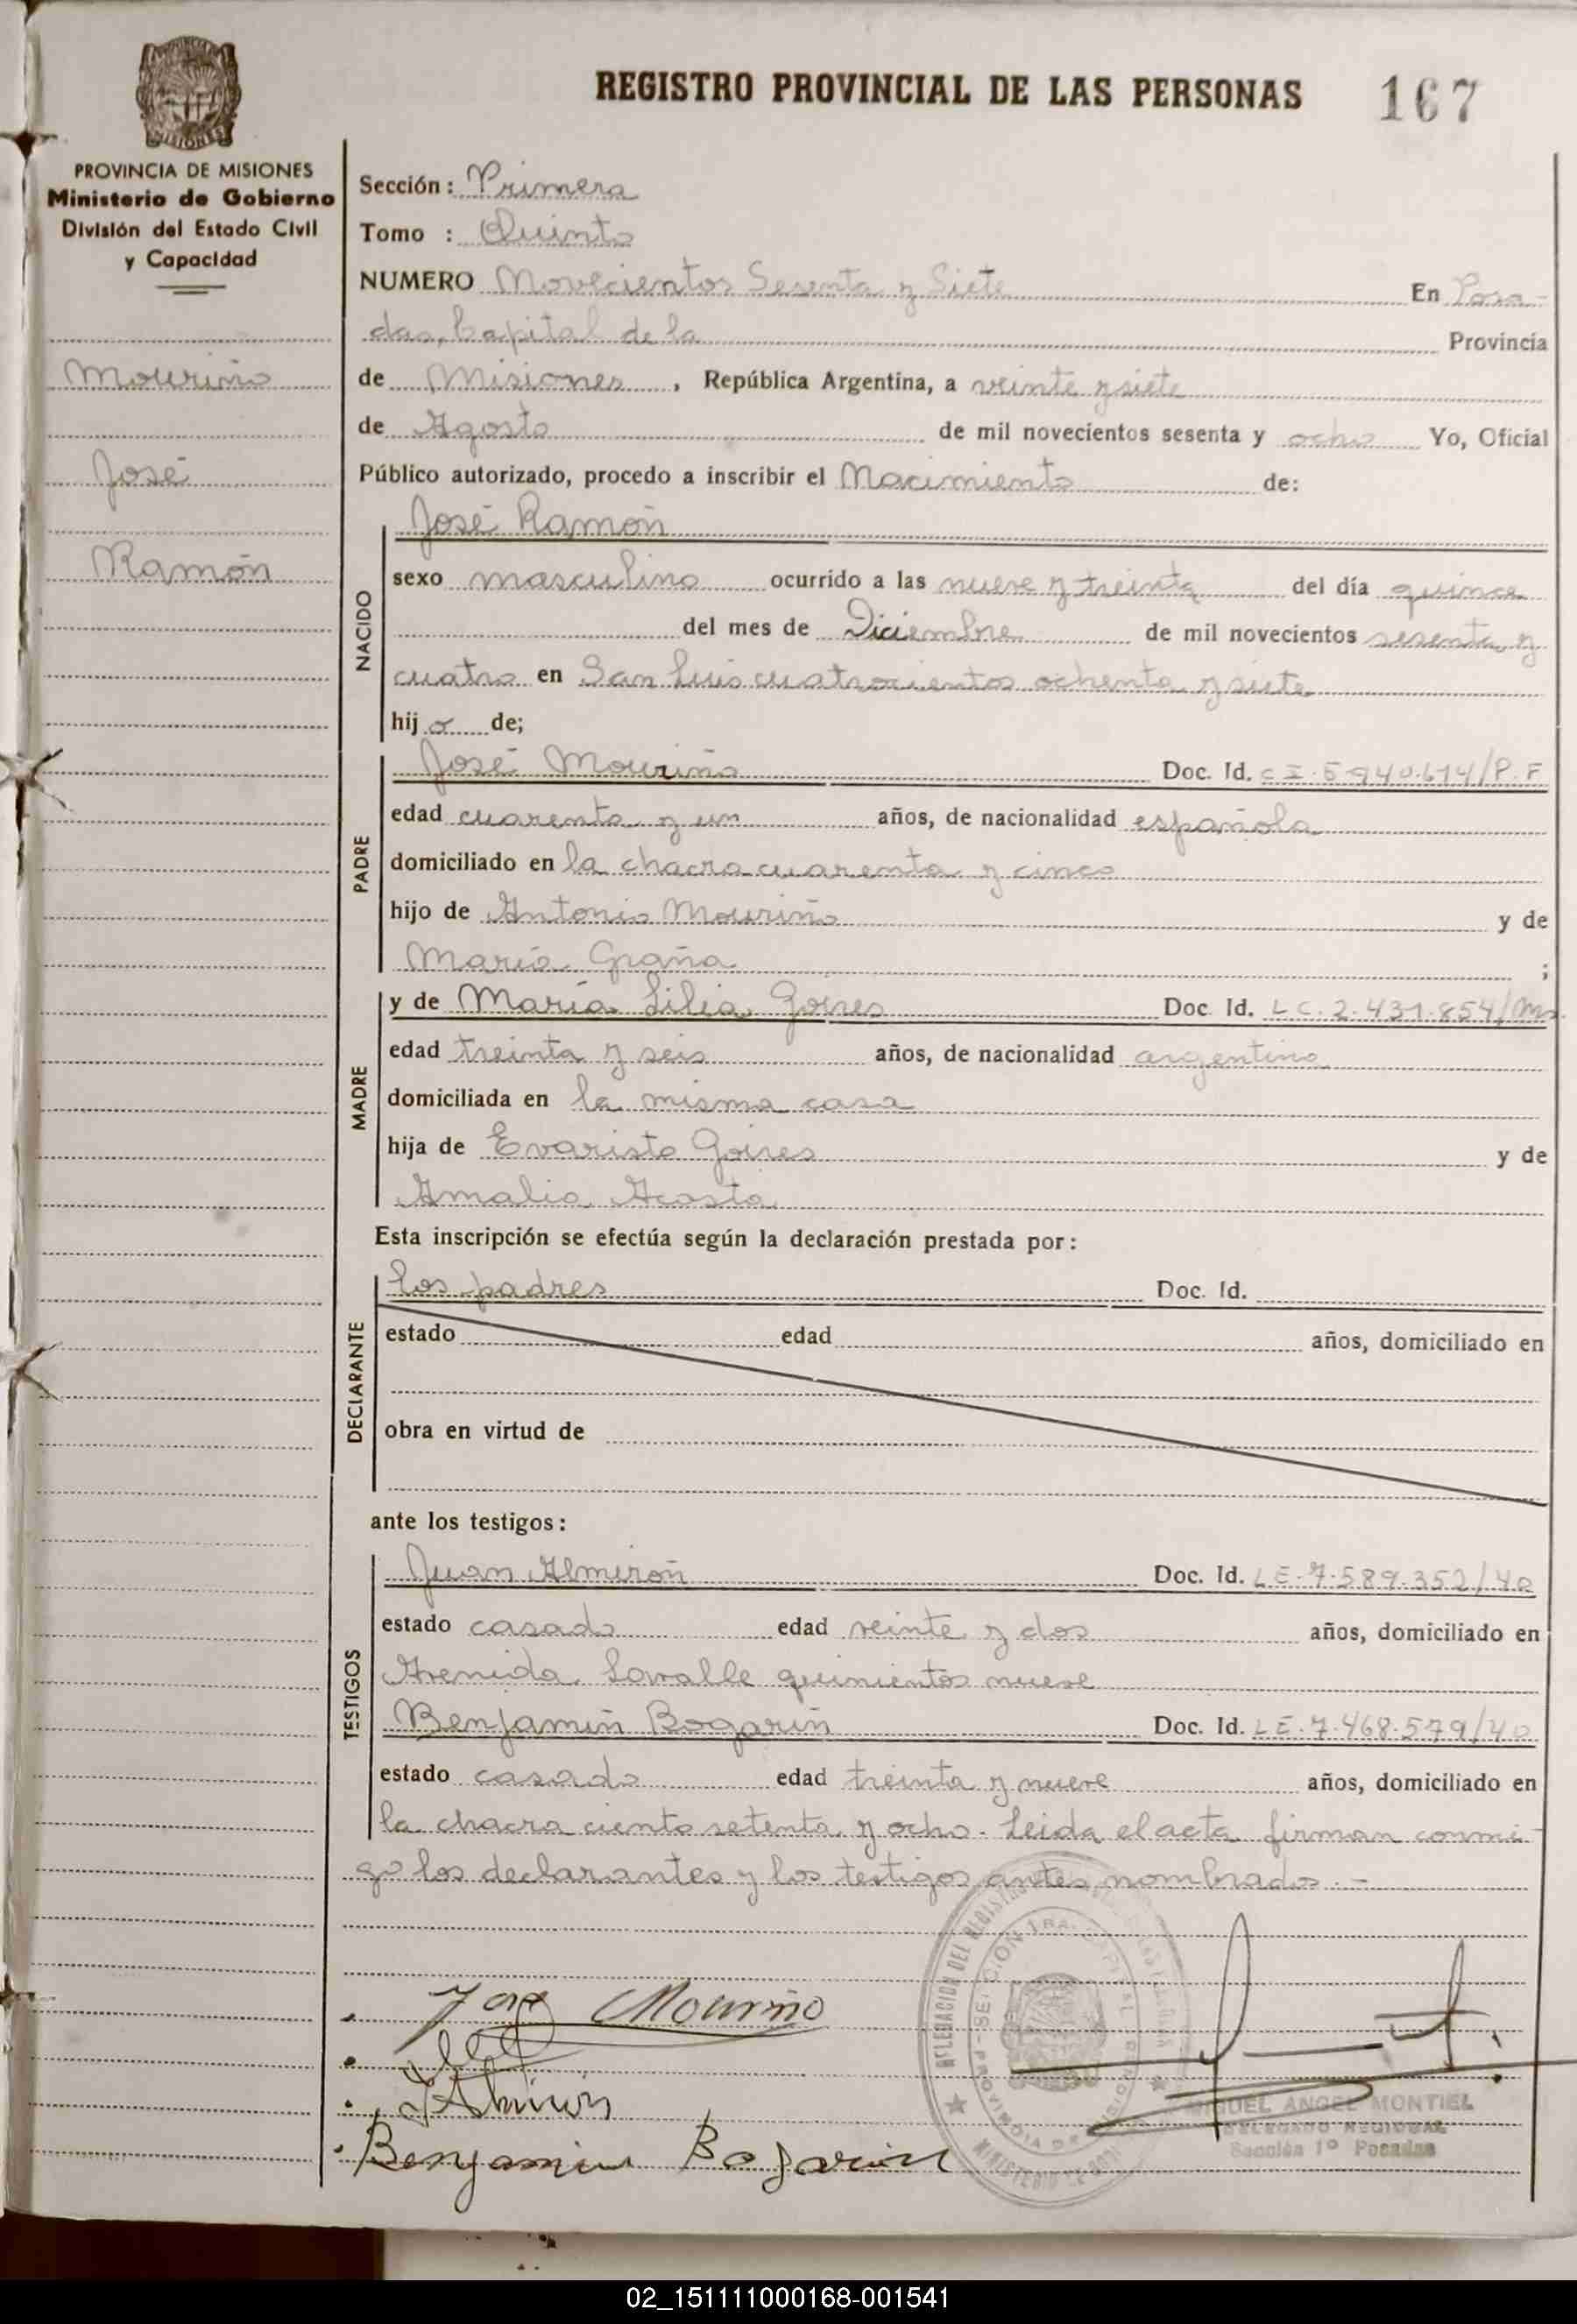 REGISTRO PROVINCIAL DE LAS PERSONAS 167
MISIONES
PROVINCIA DE MISIONES
Ministerio de Gobierno
División del Estado Civil
y Capacidad
Mouriño
José
Ramón
Sección: Primera
Tomo : Quinto
NUMERO Novecientos Sesenta y Siete En Posa-
das, Capital de la Provincia
de Misiones, República Argentina, a veinte y siete
de Agosto de mil novecientos sesenta y ocho Yo, Oficial
Público autorizado, procedo a inscribir el Nacimiento de:
NACIDO
José Ramón
sexo masculino ocurrido a las nueve y treinta del día quince
del mes de Diciembre de mil novecientos sesenta y
cuatro en San Luis cuatrocientos ochenta y siete
hijo de;
PADRE
José Mouriño Doc. Id. C I. 5.940.614/P.F
edad cuarenta y un años, de nacionalidad española
domiciliado en la chacra cuarenta y cinco
hijo de Antonio Mouriño y de
María Graña ;
MADRE
y de María Lilia Goires Doc. Id. L C. 2.431.854/Ms.
edad treinta y seis años, de nacionalidad argentina
domiciliada en la misma casa
hija de Evaristo Goires y de
Amalia Acosta
Esta inscripción se efectúa según la declaración prestada por:
DECLARANTE
los padres Doc. Id.
estado edad años, domiciliado en
obra en virtud de
ante los testigos:
TESTIGOS
Juan Almirón Doc. Id. L E. 7.589.352/40
estado casado edad veinte y dos años, domiciliado en
Avenida Lavalle quinientos nueve
Benjamín Bogarín Doc. Id. L E. 7.468.579/40
estado casado edad treinta y nueve años, domiciliado en
la chacra ciento setenta y ocho. Leida el acta firman conmi-
go los declarantes y los testigos antes nombrados.-
José Mouriño
JAlmirón
Benjamin Bogarin
DELEGACION DEL REGISTRO
SECCION 1RA.
PROVINCIA DE MISIONES
MINISTERIO DE GOB
MIGUEL ANGEL MONTIEL
DELEGADO REGIONAL
Sección 1º Posadas
02_151111000168-001541